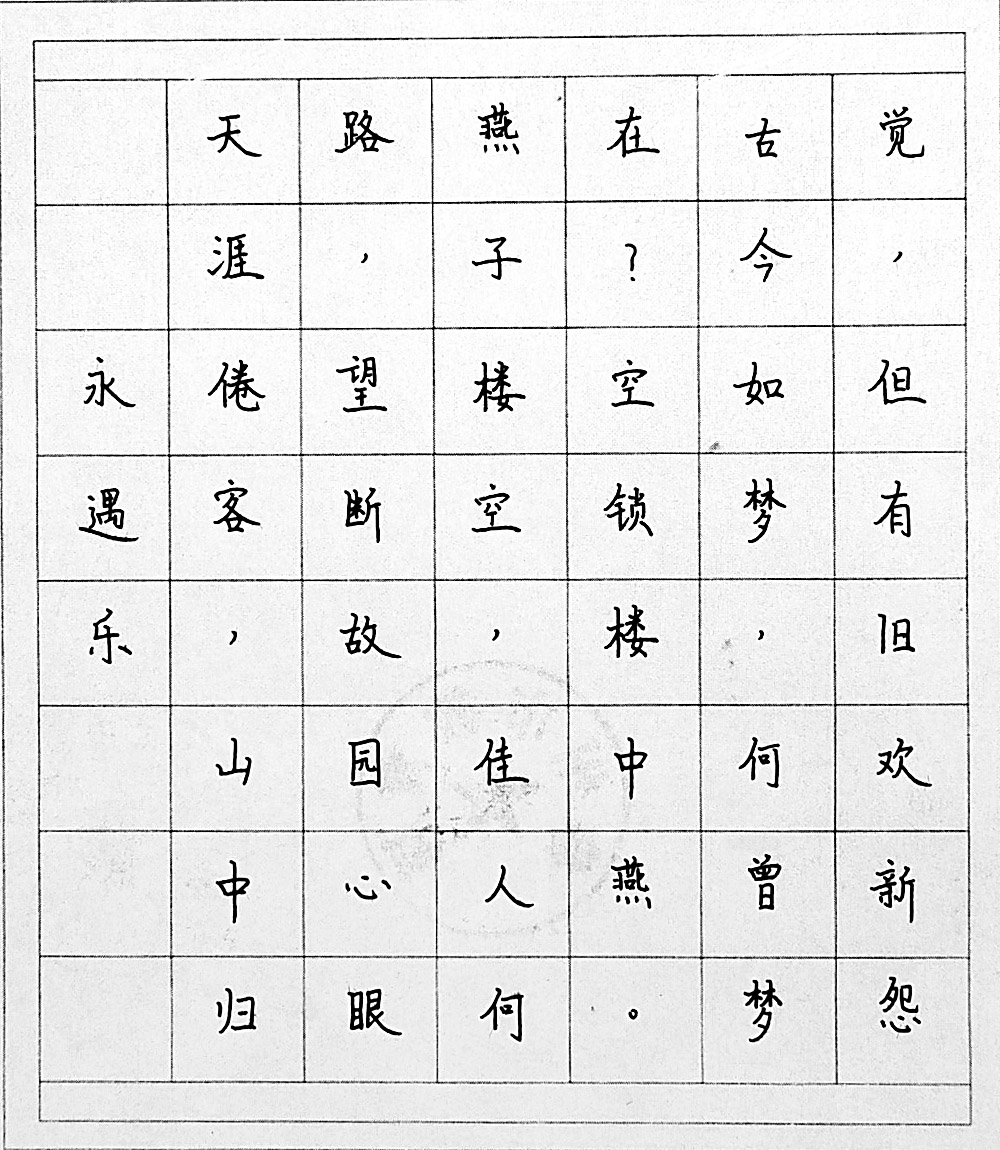 永遇乐
天涯倦客，山中归
路，望断故园心眼
燕子楼空，佳人何
在？空锁楼中燕。
古今如梦，何曾梦
觉，但有旧欢新怨